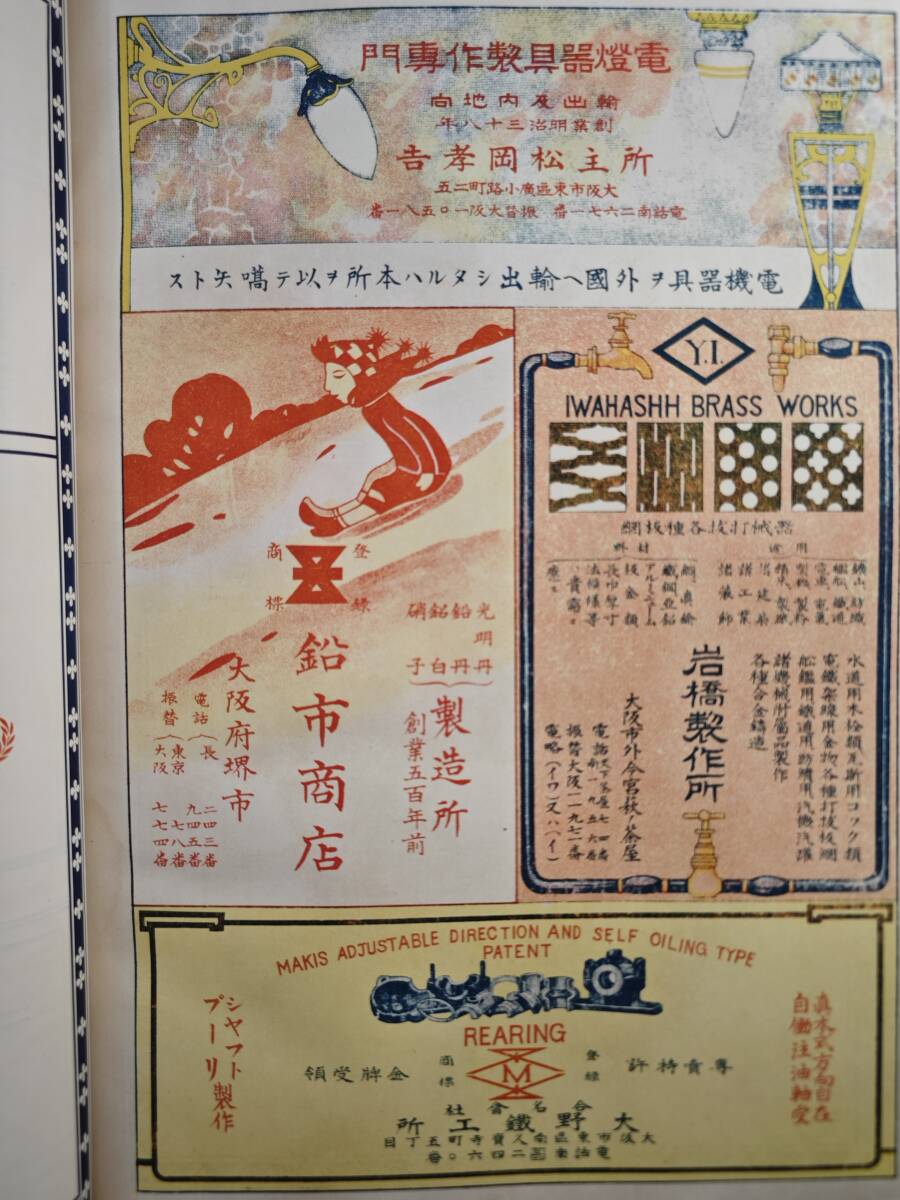 電燈器具製作專門
輸出及内地向
創業明治三十八年
所主松岡孝吉
大阪市東區廣小路町二五
電話南二六七一番 振替大阪一〇五八一番
電機器具ヲ外國ヘ輸出シタルハ本所ヲ以テ嚆矢トス
Y.I.
IWAHASHH BRASS WORKS
器械打拔各種板網
用途
材料
鑛山、紡織
諸工業
諸儀飾
網、眞鍮
鐵銅亞鉛
アルミニューム
板金類
水道用水栓類瓦斯用コック類
電鐵架線用金物各種打拔板網
諸器械附屬品製作
各種合金鑄造
岩橋製作所
大阪市外今宮萩ノ茶屋
振替大阪一一九七一番
電略(イワ)又ハ(イ)
登録
商標
光明丹
鉛丹
硝子
製造所
創業五百年前
鉛市商店
大阪府堺市
電話
長
二四三番
九四五番
振替
東京
大阪
七七四番
MAKIS ADJUSTABLE DIRECTION AND SELF OILING TYPE
PATENT
REARING
眞木式方向自在
自働注油軸受
專賣特許
登録
M
商標
金牌受領
シャフト
プーリ
製作
合名會社
大野鐵工所
大阪市東區南人寶寺町五丁目
電話南二四六〇番